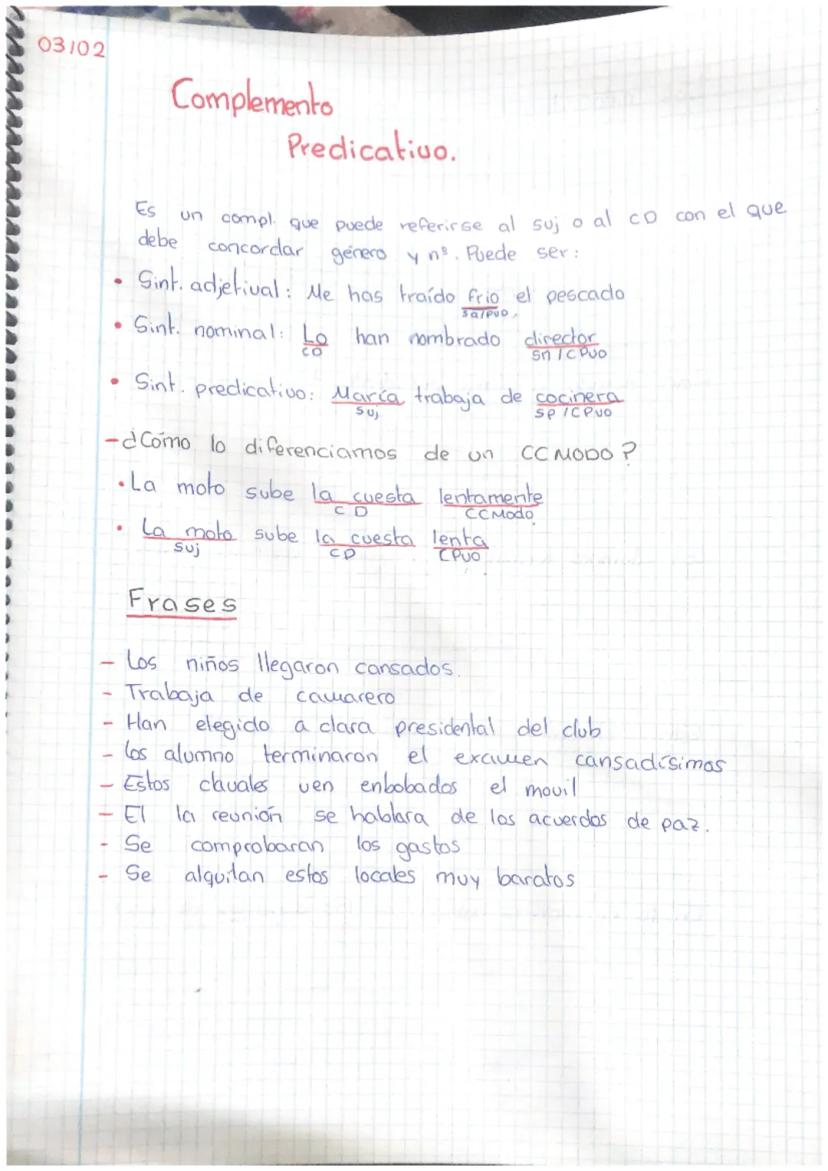 03/02
Complemento
Predicativo.
Es un compl. que puede referirse al suj o al CD con el que
debe concordar género y nº. Puede ser:
• Sint. adjetival: Me has traído frio el pescado
sa/pvo.
• Sint. nominal: Lo han nombrado director
CD sn / C Pvo
• Sint. predicativo: María trabaja de cocinera
suj SP / C Pvo
- ¿Cómo lo diferenciamos de un CC MODO?
• La moto sube la cuesta lentamente
CD CC Modo
• La moto sube la cuesta lenta
suj CD CPvo
Frases
- Los niños llegaron cansados.
- Trabaja de camarero
- Han elegido a clara presidental del club
- Los alumno terminaron el examen cansadísimos
- Estos chavales ven enbobados el movil
- El la reunión se hablara de los acuerdos de paz.
- Se comprobaran los gastos
- Se alquilan estos locales muy baratos